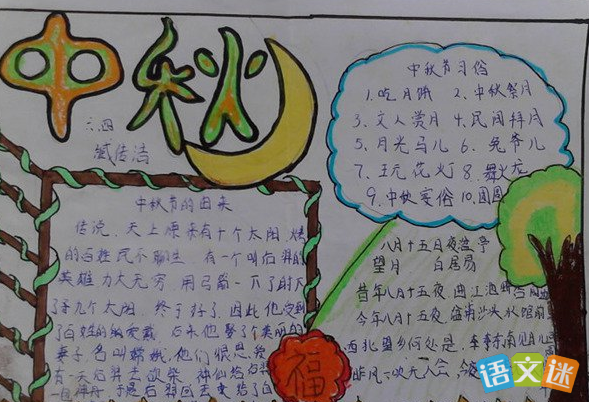 中秋
六.四
中秋节习俗
1.吃月饼 2.中秋祭月
3.文人赏月 4.民间拜月
5.月光马儿 6.兔爷儿
7.玩花灯 8.舞火龙
9.中秋宴俗 10.团圆
中秋节的由来
传说,天上原来有十个太阳,烤
的百姓民不聊生,有一个叫后羿的
英雄力大无穷,用弓箭一下了射下
了九个太阳,终于好了,因此他受到
了白姓的 爱戴,后来他娶了个美丽的
妻子,名叫嫦娥,他们很恩爱
有一天后羿去砍柴,神仙给后羿
八月十五日夜湓亭
望月 白居易
昔年八月十五夜,曲江池畔杏园
今年八月十五夜,湓浦沙头水馆前
西北望乡何处是,东南见月几
昨风一吹无人会,今夜
福
语文迷